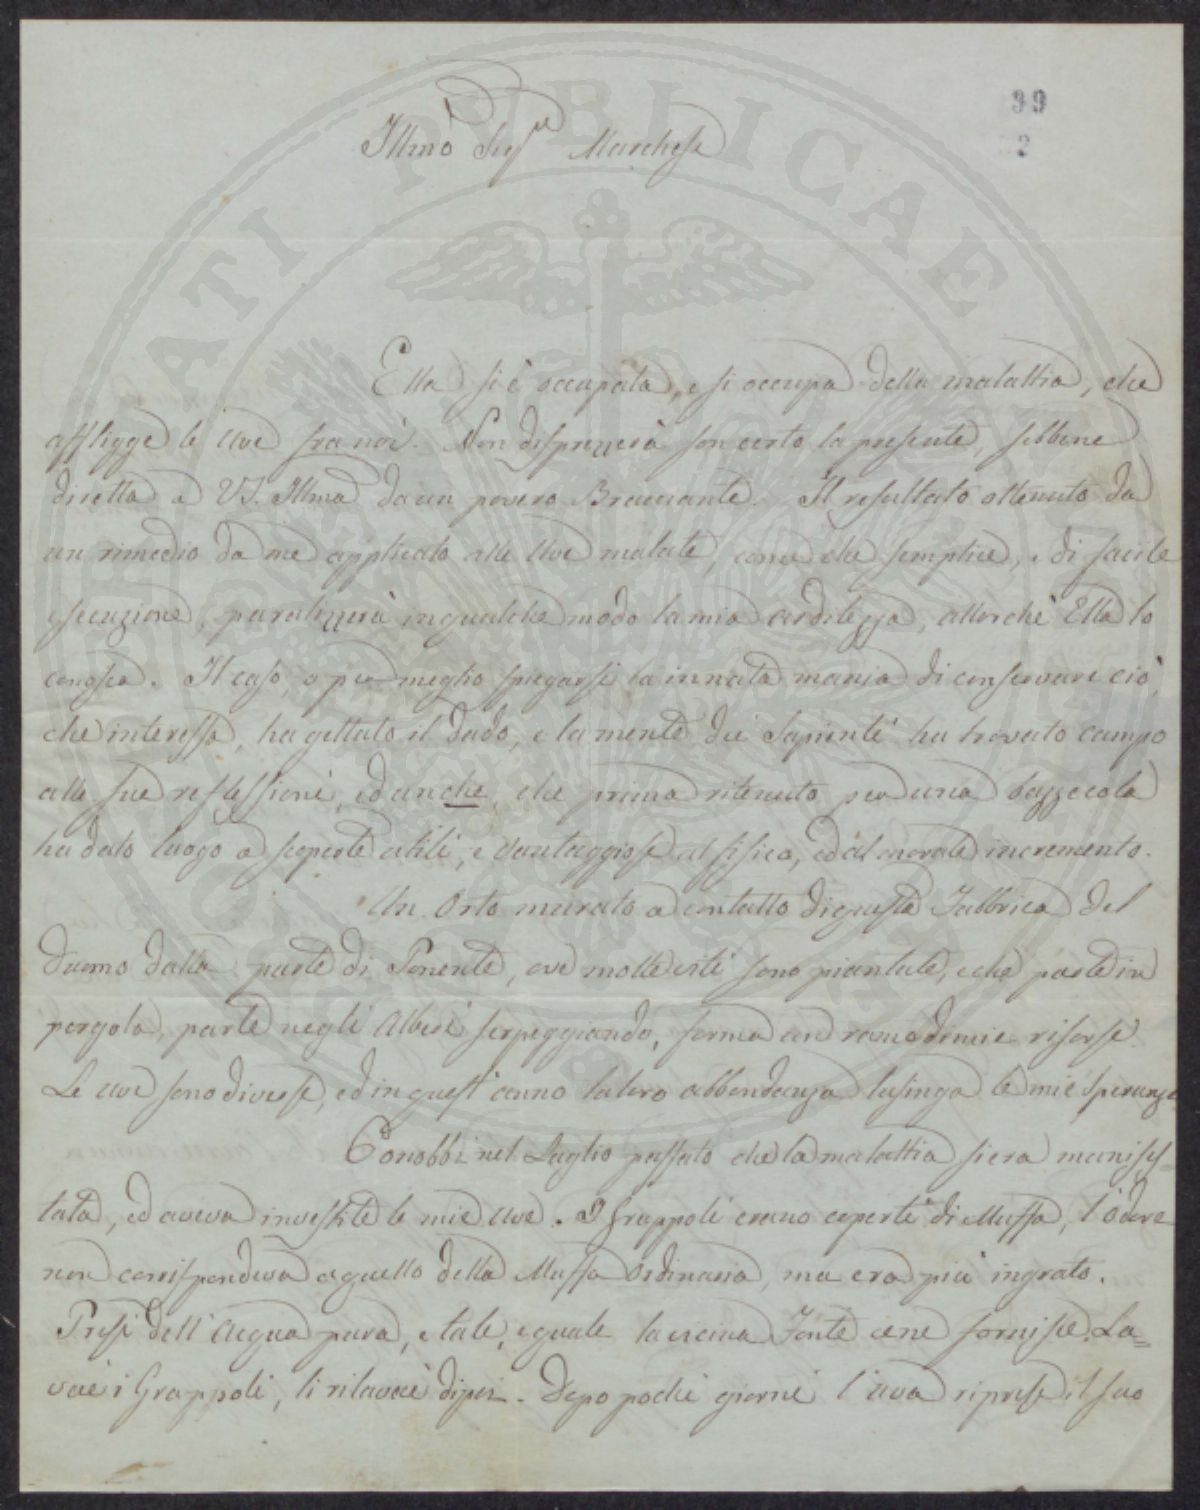 99
2
Illmo Sigr Marchese
Ella si è occupata, e si occupa della malattia, che
affligge le Uve fra noi. Non disprezzerà son certo la presente, sebbene
diretta a VS. Illma da un povero Bracciante. Il resultato ottenuto da
un rimedio da me applicato alle Uve malate, come che semplice, e di facile
esecuzione, paralizzerà in qualche modo la mia arditezza, allorchè Ella lo
conosca. Il caso, o per meglio spiegarsi la innata mania di conservare ciò,
che interessa, ha gettato il dado, e la mente dei Sapienti ha trovato campo
alle sue reflessioni, ed anche, che prima ritenuto per una bazzecola
ha dato luogo a scoperte utili, e vantaggiose al fisico, ed al morale incremento.
Un Orto murato a contatto di questa Fabbrica del
Duomo dalla parte di Ponente, ove molte viti sono piantate, e che parte in
pergola, parte negli Alberi serpeggiando, forma un ramo di mie risorse.
Le Uve sono diverse, ed in quest'anno la loro abbondanza lusinga le mie speranze
Conobbi nel Luglio passato che la malattia si era manifes-
tata, ed aveva investite le mie Uve. I Grappoli erano coperti di Muffa, l'odore
non corrispondeva a quello della Muffa Ordinaria, ma era più ingrato.
Presi dell'Acqua pura, e tale, e quale la vicina Fonte ce ne fornisce. La=
vai i Grappoli, li rilavai dipoi. Dopo pochi giorni l'uva riprese il suo